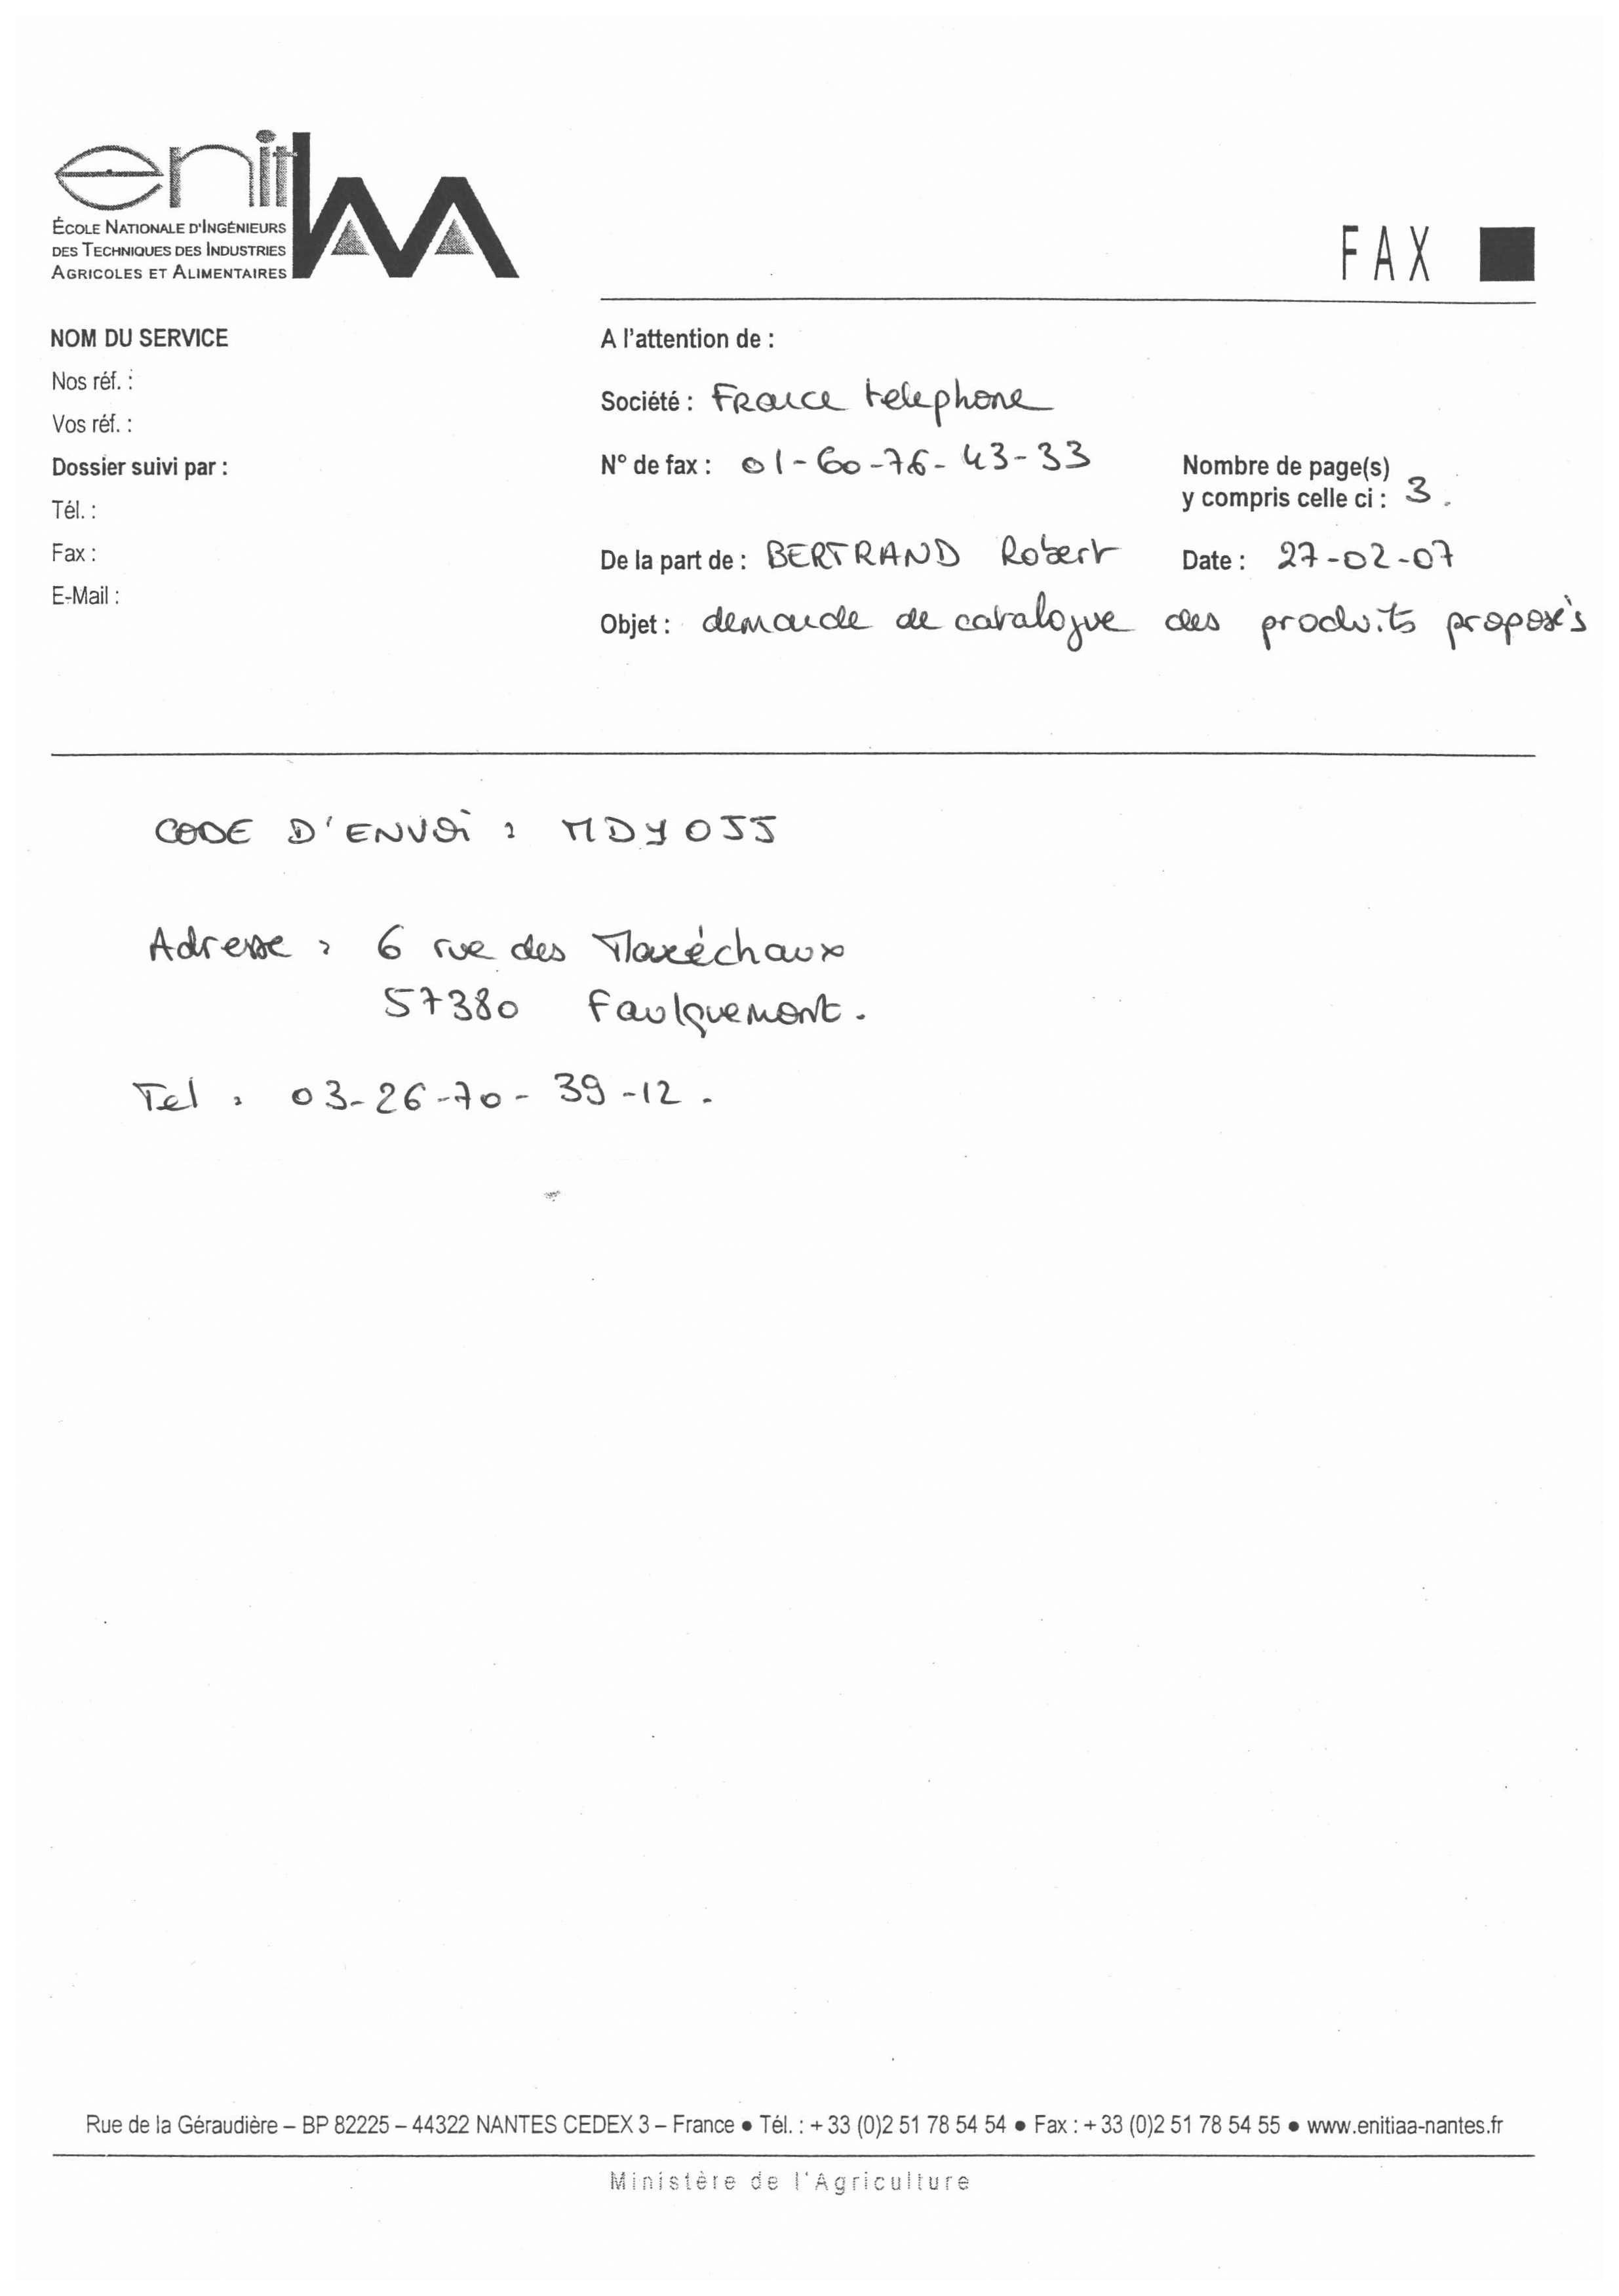 enitIAA
ÉCOLE NATIONALE D'INGÉNIEURS
DES TECHNIQUES DES INDUSTRIES
AGRICOLES ET ALIMENTAIRES
FAX
NOM DU SERVICE
Nos réf. :
Vos réf. :
Dossier suivi par :
Tél. :
Fax :
E-Mail :
A l'attention de :
Société : France telephone
N° de fax : 01-60-76-43-33
Nombre de page(s)
y compris celle ci : 3.
De la part de : BERTRAND Robert
Date : 27-02-07
Objet : demande de catalogue des produits proposés
CODE D'ENVOI : MDY0JJ
Adresse : 6 rue des Maréchaux
57380 Faulquemont.
Tel : 03-26-70-39-12.
Rue de la Géraudière – BP 82225 – 44322 NANTES CEDEX 3 – France ● Tél. : + 33 (0)2 51 78 54 54 ● Fax : + 33 (0)2 51 78 54 55 ● www.enitiaa-nantes.fr
Ministère de l'Agriculture